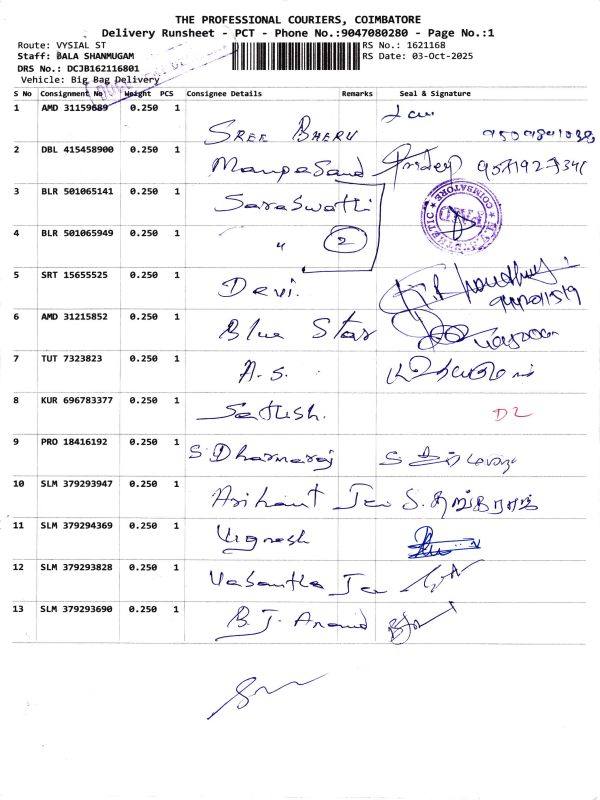 THE PROFESSIONAL COURIERS, COIMBATORE
Delivery Runsheet - PCT - Phone No.:9047080280 - Page No.:1
Route: VYSIAL ST
RS No.: 1621168
Staff: BALA SHANMUGAM
RS Date: 03-Oct-2025
DRS No.: DCJB162116801
Vehicle: Big Bag Delivery
S No Consignment No Weight PCS Consignee Details Remarks Seal & Signature
1 AMD 31159689 0.250 1 Sree Bheru
2 DBL 415458900 0.250 1 Manpasand
3 BLR 501065141 0.250 1 Saraswathi
4 BLR 501065949 0.250 1 " 2
COIMBATORE
5 SRT 15655525 0.250 1 Devi.
6 AMD 31215852 0.250 1 Blue Star
7 TUT 7323823 0.250 1 A.S.
8 KUR 696783377 0.250 1 Sathish. D2
9 PRO 18416192 0.250 1 S Dharmaraj
10 SLM 379293947 0.250 1 Arihant Jew
11 SLM 379294369 0.250 1 Vignesh
12 SLM 379293828 0.250 1 Vasantha Jew
13 SLM 379293690 0.250 1 B.J. Anand